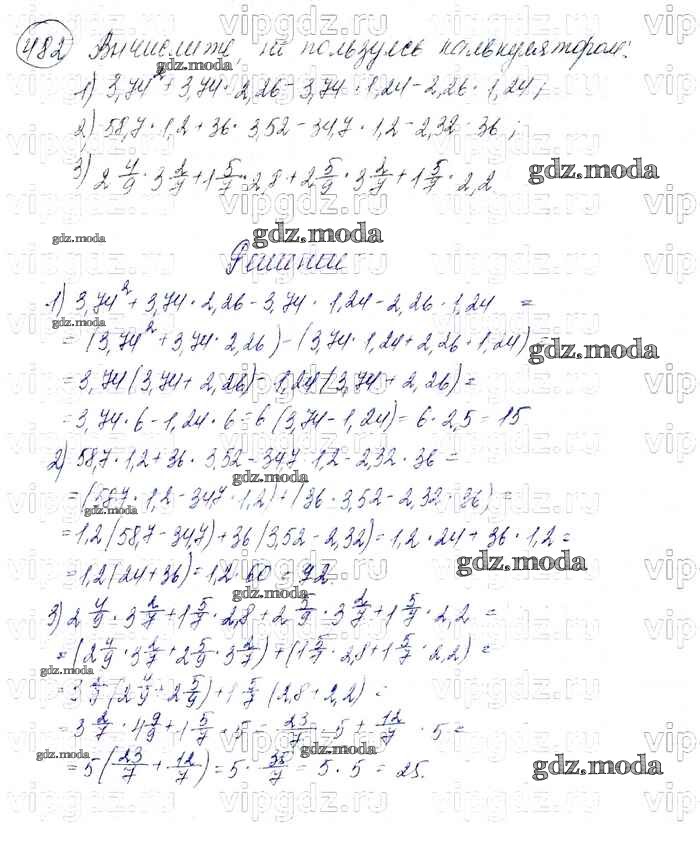 482 Вычислите, не пользуясь калькулятором:
1) 3,74² + 3,74 · 2,26 - 3,74 · 1,24 - 2,26 · 1,24;
2) 58,7 · 1,2 + 36 · 3,52 - 34,7 · 1,2 - 2,32 · 36;
3) 2 4/9 · 3 2/7 + 1 5/7 · 2,8 + 2 5/9 · 3 2/7 + 1 5/7 · 2,2
Решение
1) 3,74² + 3,74 · 2,26 - 3,74 · 1,24 - 2,26 · 1,24 =
= (3,74² + 3,74 · 2,26) - (3,74 · 1,24 + 2,26 · 1,24) =
= 3,74 (3,74 + 2,26) - 1,24 (3,74 + 2,26) =
= 3,74 · 6 - 1,24 · 6 = 6 (3,74 - 1,24) = 6 · 2,5 = 15
2) 58,7 · 1,2 + 36 · 3,52 - 34,7 · 1,2 - 2,32 · 36 =
= (58,7 · 1,2 - 34,7 · 1,2) + (36 · 3,52 - 2,32 · 36) =
= 1,2 (58,7 - 34,7) + 36 (3,52 - 2,32) = 1,2 · 24 + 36 · 1,2 =
= 1,2 (24 + 36) = 1,2 · 60 = 72.
3) 2 4/9 · 3 2/7 + 1 5/7 · 2,8 + 2 5/9 · 3 2/7 + 1 5/7 · 2,2 =
= (2 4/9 · 3 2/7 + 2 5/9 · 3 2/7) + (1 5/7 · 2,8 + 1 5/7 · 2,2) =
= 3 2/7 (2 4/9 + 2 5/9) + 1 5/7 (2,8 + 2,2) =
= 3 2/7 · 4 9/9 + 1 5/7 · 5 = 23/7 · 5 + 12/7 · 5 =
= 5 (23/7 + 12/7) = 5 · 35/7 = 5 · 5 = 25.
gdz.moda
vipgdz.ru